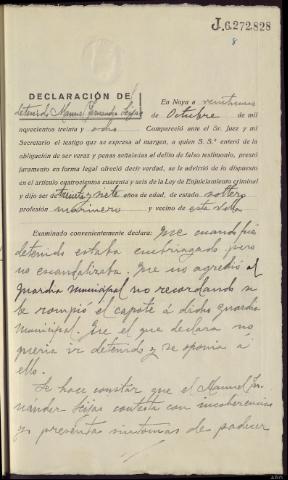 J.6.272.828
8
DECLARACIÓN DEL
detenido Manuel Fernandez Seijas
En Noya a veintiuno
de Octubre de mil
novecientos treinta y ocho Compareció ante el Sr. Juez y mi
Secretario el testigo que se expresa al margen, a quien S. Sª. enteró de la
obligación de ser veraz y penas señaladas al delito de falso testimonio, prestó
juramento en forma legal ofreció decir verdad, se le advirtió de lo dispuesto
en el artículo cuatrocientos cuarenta y seis de la Ley de Enjuiciamiento criminal
y dijo ser de treinta y siete años de edad, de estado soltero
profesión marinero y vecino de esta villa
Examinado convenientemente declara: Que cuando fué
detenido estaba embriagado pero
no escandalizaba. Que no agredió al
guardia municipal no recordando si
le rompió el capote á dicho guardia
municipal. Que el que declara no
queria ir detenido y se oponia á
ello.
Se hace constar que el Manuel Fer-
nández Seijas contesta con incoherencias
y presenta sintomas de padecer